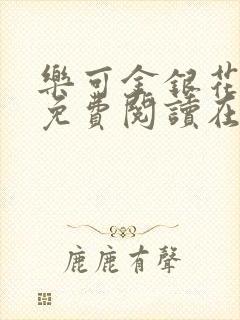 樂可金銀花
免費閱讀在
鹿鹿有聲